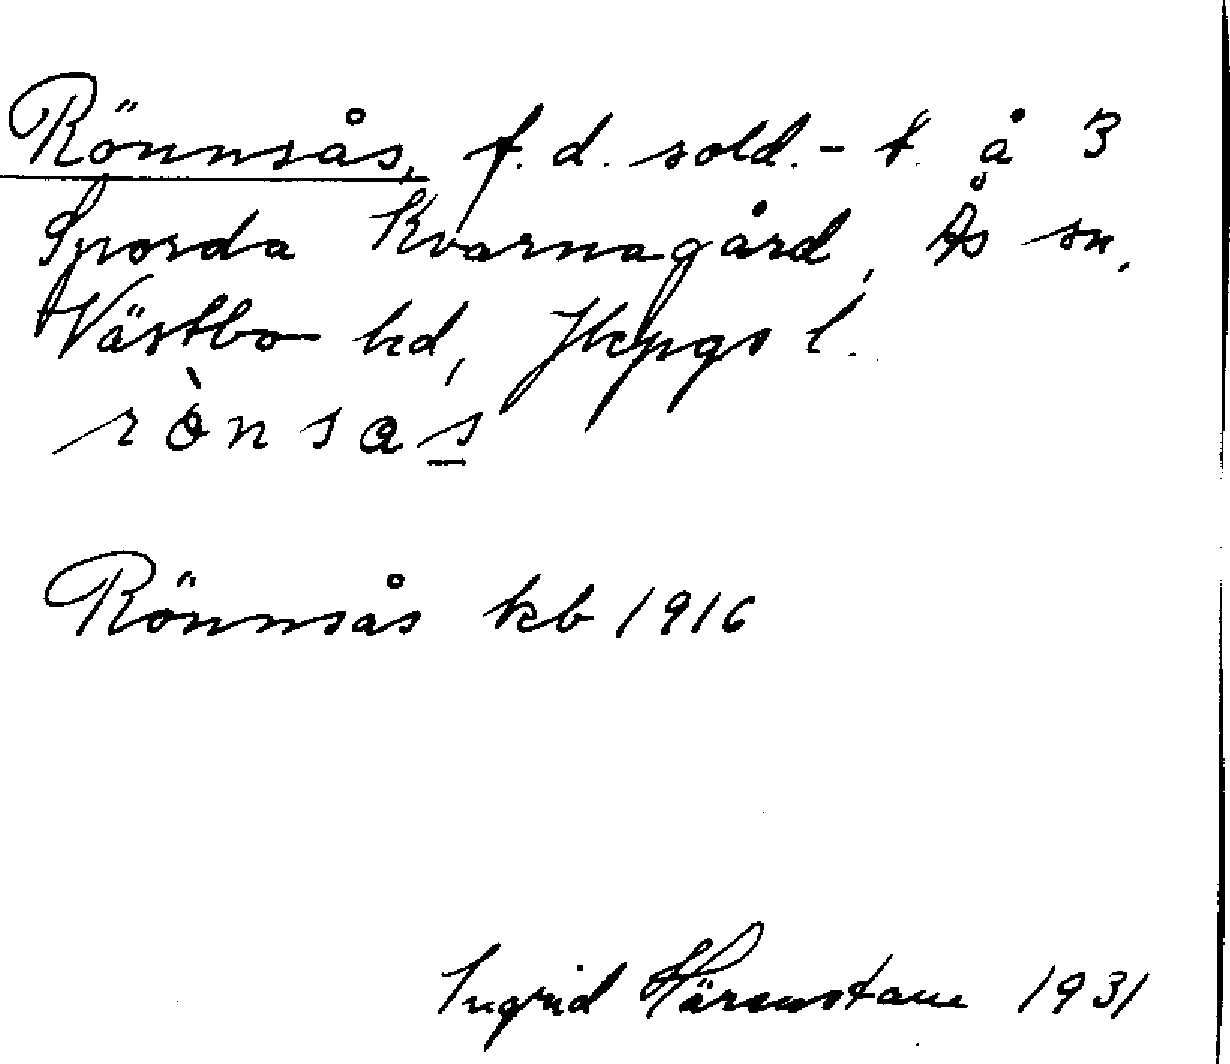 Rönnsås, f.d. sold.-t. å 3
Sporda Kvarnagård, Ås sn,
Västbo hd, Jkpgs l.
rònsas
Rönnsås kb 1916
Ingrid Härenstam 1931